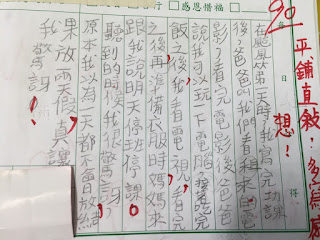 感恩惜福
90
平鋪直敘,多寫感想!
在颱風第一天時,我寫完功課
後,爸爸叫我們看租來的電
影,看完電影後爸爸
說我可以玩一下電腦,等吃完
飯之後,我看電視,看完
之後,再準備衣服時媽媽來
跟我說明天停班停課。
聽到的時候我很驚訝,
原本我以為一天都不會放,結
果放兩天假,真讓
我驚訝!